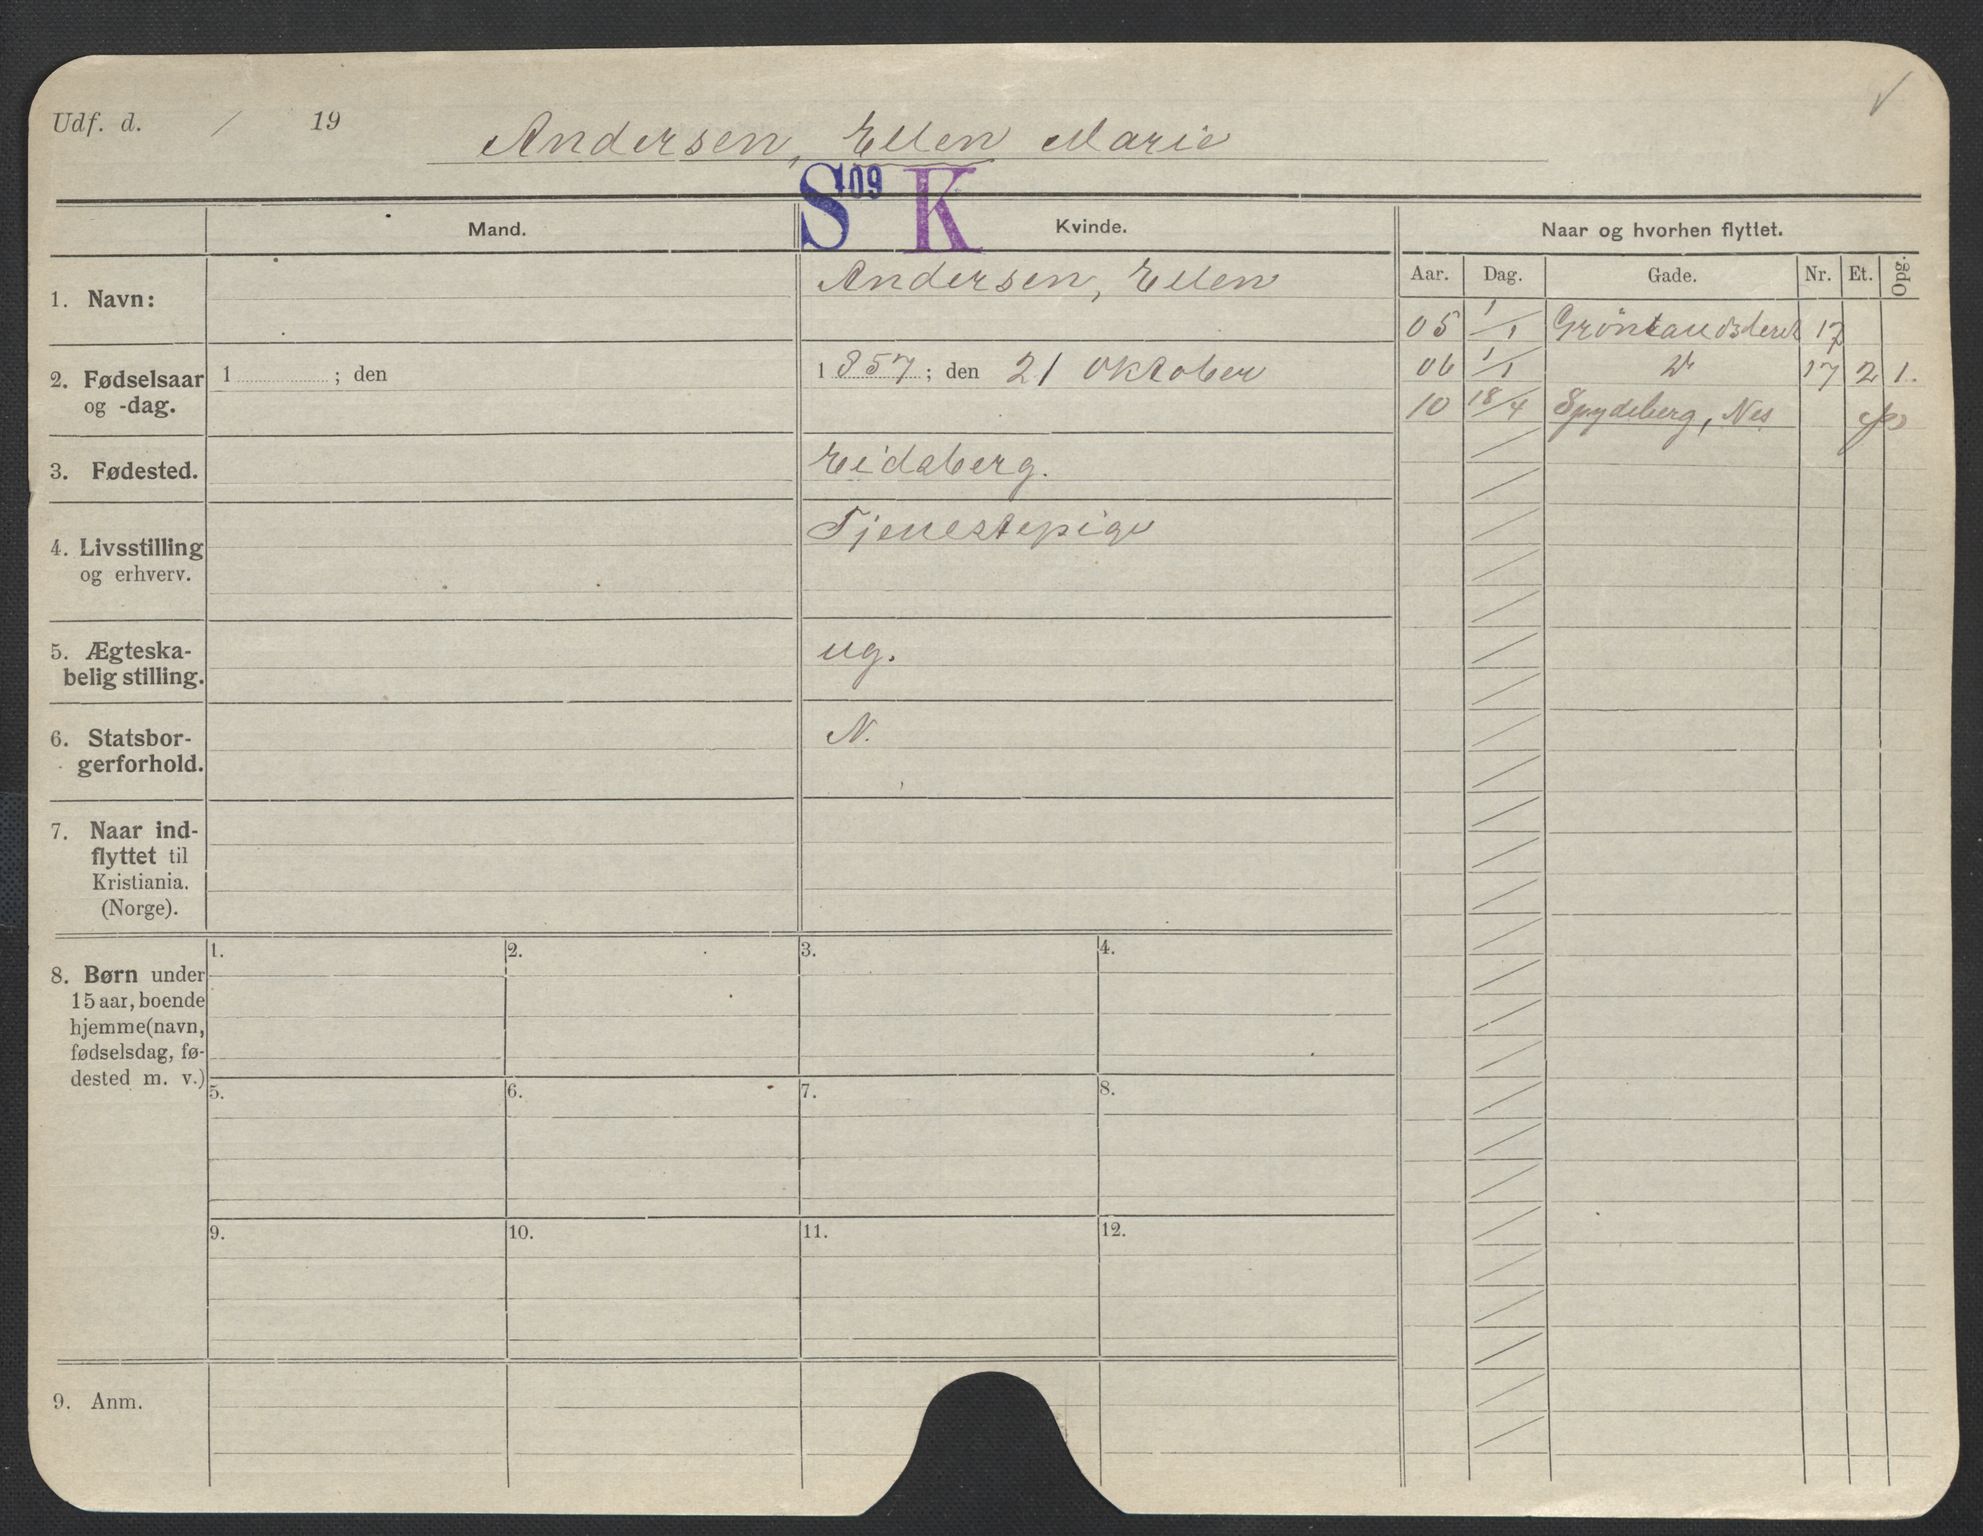 Udf. d. / 19
Andersen, Ellen Marie
S 09 K
Mand.
Kvinde.
Naar og hvorhen flyttet.
Aar. Dag. Gade. Nr. Et. Opg.
1. Navn:
Andersen, Ellen
05 1/1 17
2. Fødselsaar
og -dag.
1 ; den
1857; den 21 Oktober
06 1/1 17 2 1.
10 18/4 Spydeberg, Nes
3. Fødested.
Eidsberg.
4. Livsstilling
og erhverv.
Tjenestepige
5. Ægteska-
belig stilling.
ug.
6. Statsbor-
gerforhold.
N.
7. Naar ind-
flyttet til
Kristiania.
(Norge).
8. Børn under
15 aar, boende
hjemme (navn,
fødselsdag, fø-
dested m. v.)
1. 2. 3. 4.
5. 6. 7. 8.
9. 10. 11. 12.
9. Anm.